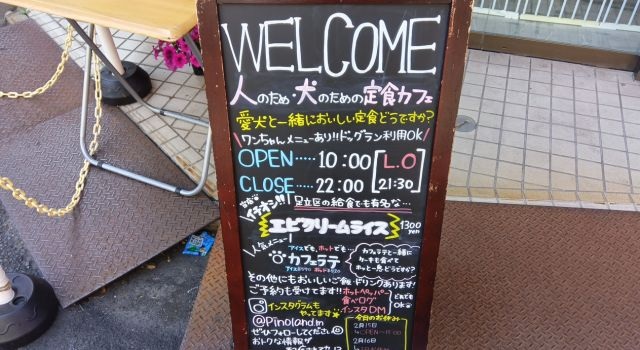 WELCOME
人のため・犬のための定食カフェ
愛犬と一緒においしい定食どうですか?
\ワンちゃんメニューあり!!ドッグラン利用OK/
OPEN・・・・・10:00
CLOSE・・・・22:00
[L.O 21:30]
イチオシ!!
足立区の給食でも有名な…
エビクリームライス
1300yen
人気メニュー
アイスでも、ホットでも…
カフェラテ
カフェラテと一緒に
ケーキも食べて
ホッと一息どうですか?
その他にもおいしいご飯・ドリンクあります!
ご予約も受けてます!!
ホットペッパー
食べログ
インスタDM
どれでもOk
インスタグラムも
やってます
@Pinoland.m
ぜひフォローしてください
おトクな情報が
今日のお休み
2月15日
2月16日